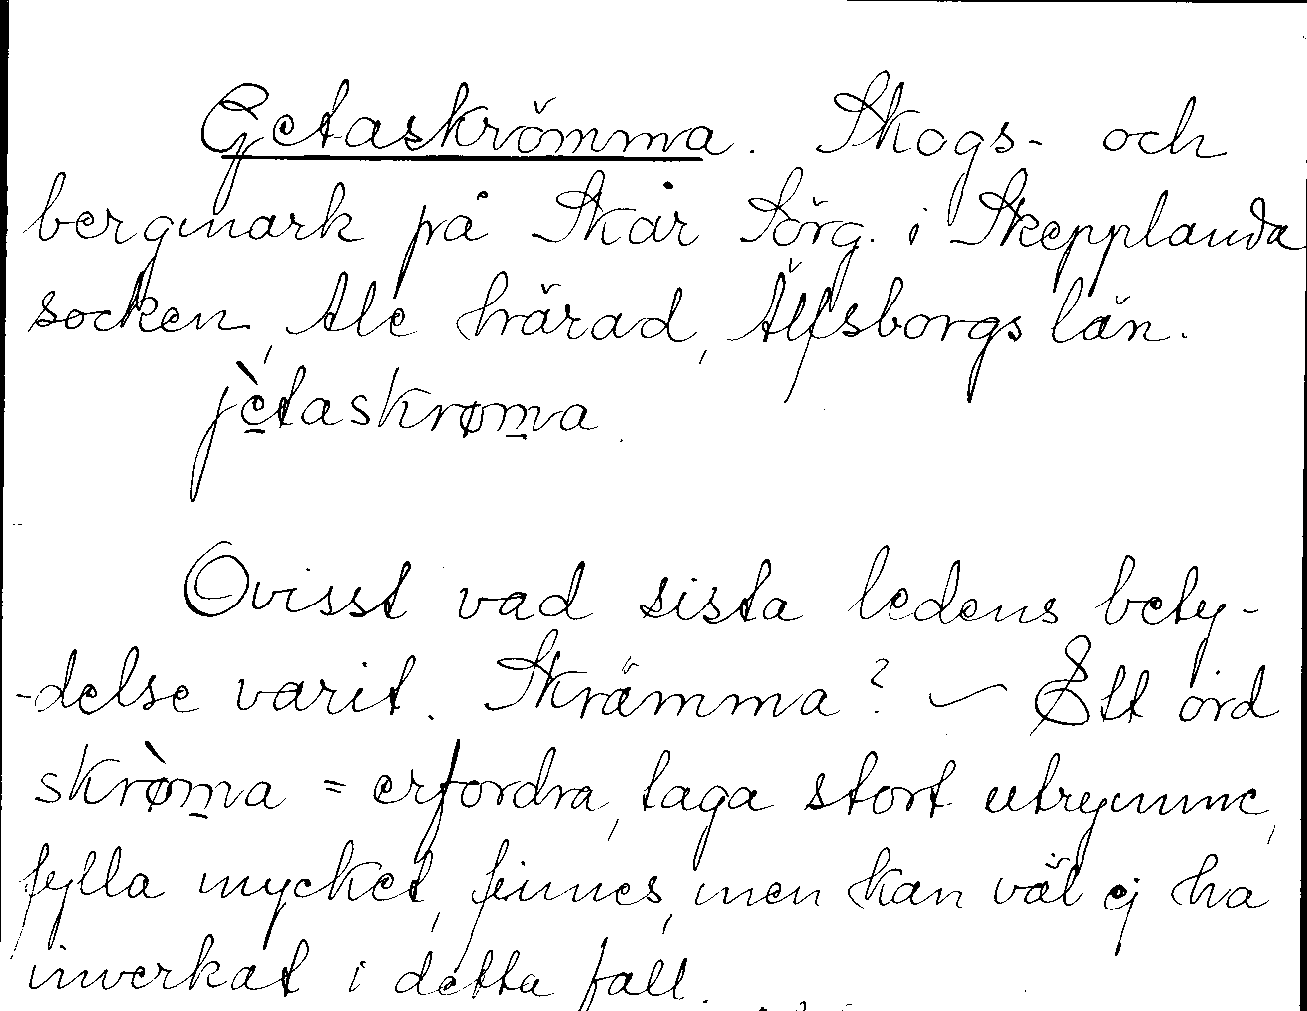 Getaskrömma. Skogs- och
bergmark på Skår Sörg. i Skepplanda
socken, Ale härad, Älfsborgs län.
jètaskrøma.
Ovisst vad sista ledens bety-
-delse varit. Skrämma? – Ett ord
skrø̀ma = erfordra, taga stort utrymme,
fylla mycket, finnes, men kan väl ej ha
inverkat i detta fall.